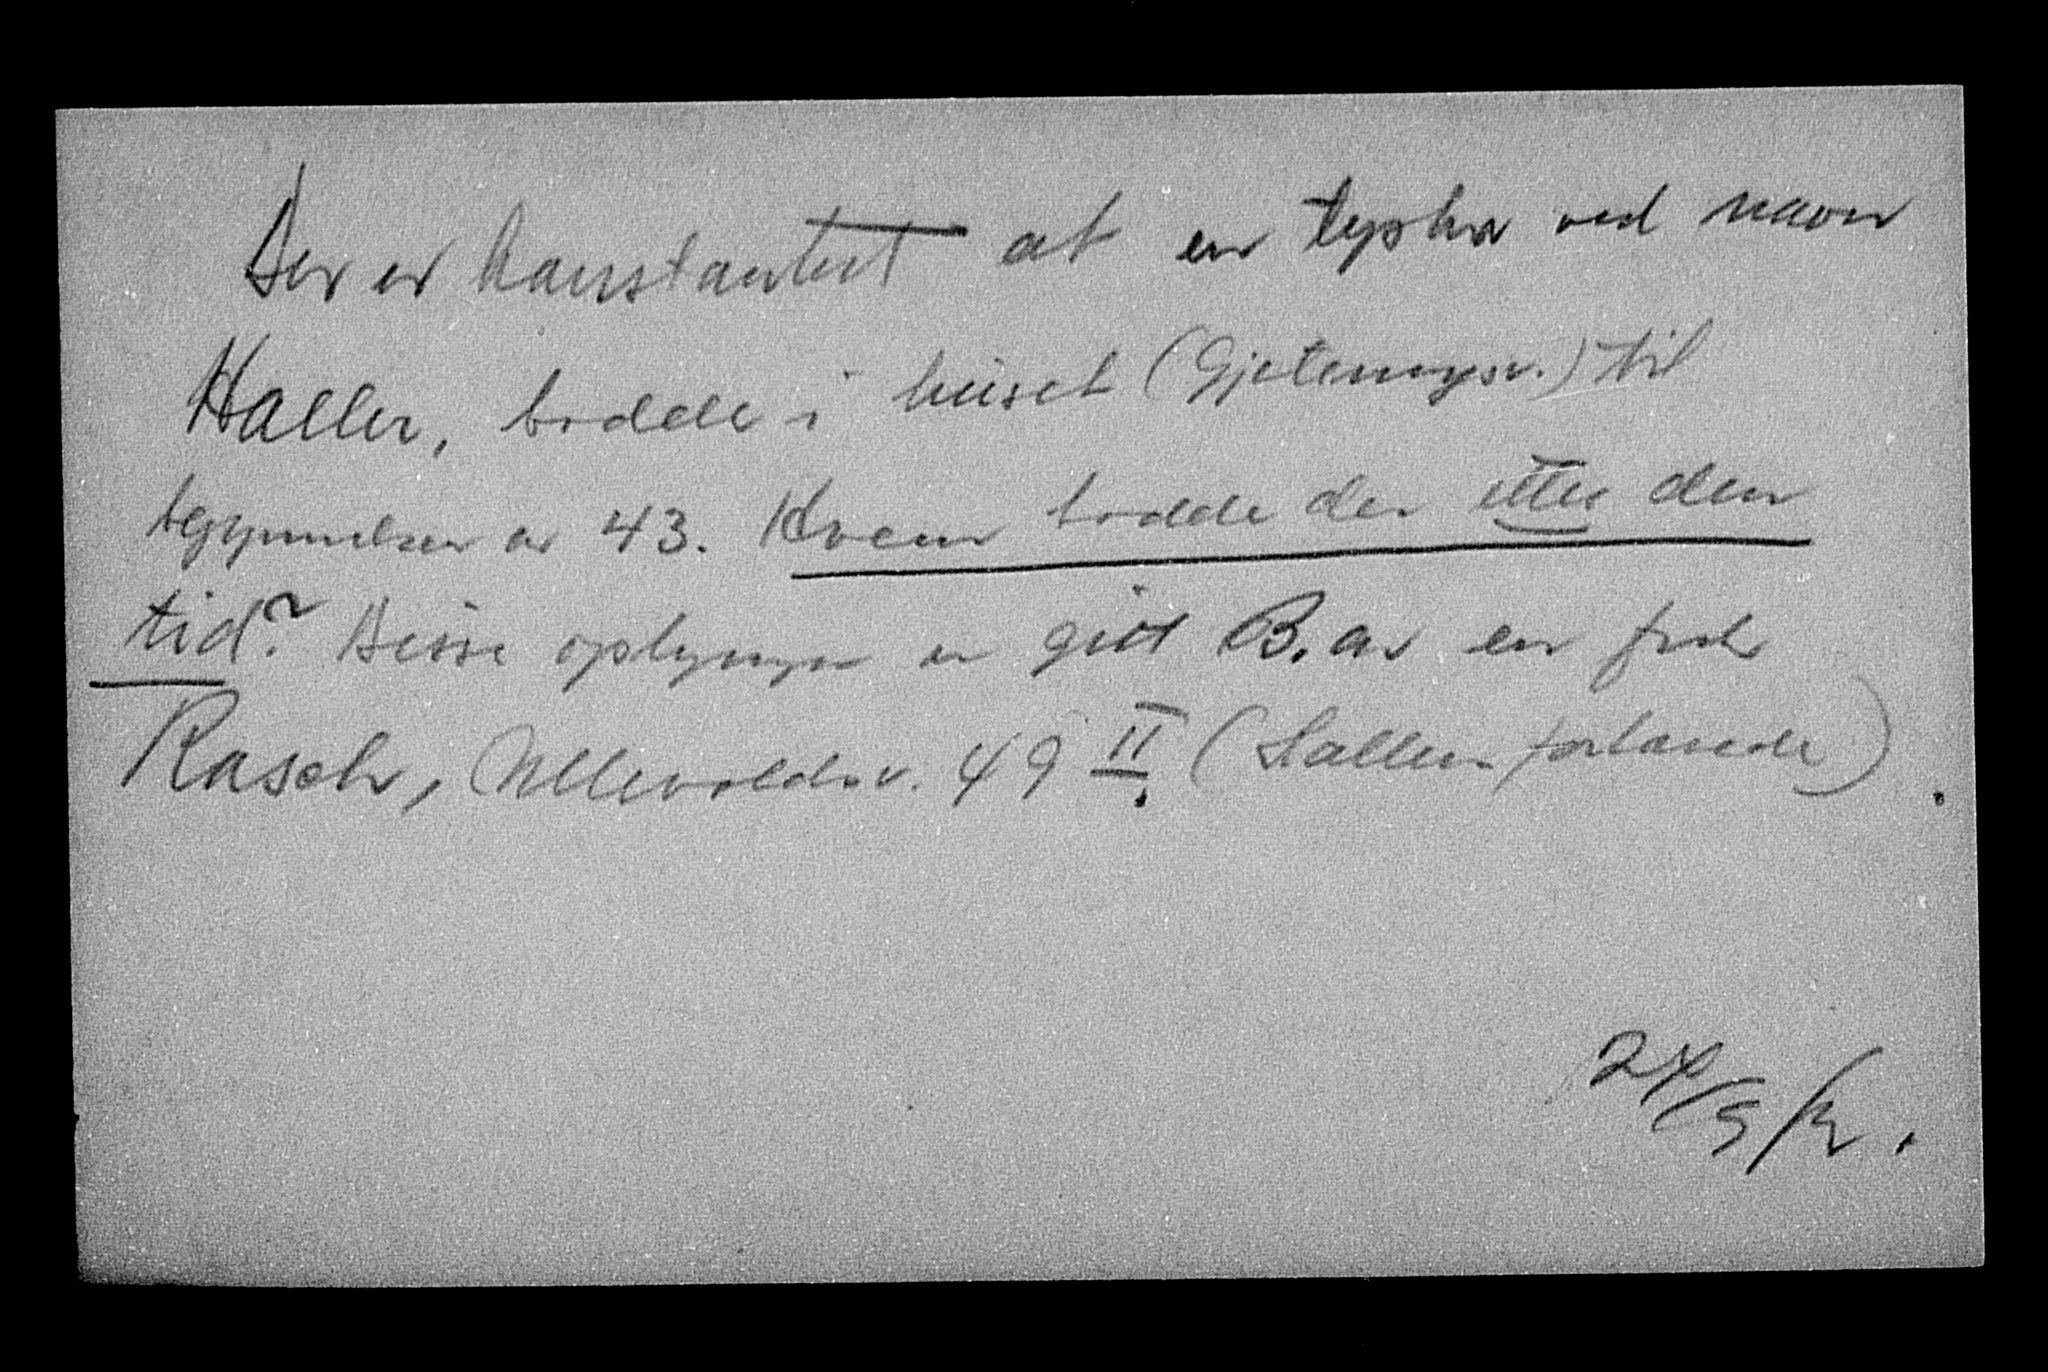 Der er konstantert at en tysker ved navn
Haller, bodde i huset (Gjetemyrsv.) til
begynnelsen av 43. Hvem bodde der etter den
tid? Disse oplysnger er gitt B. av en frk
Rasch, Ullevoldsv. 49 II. (Sallen forlanede).
24/5